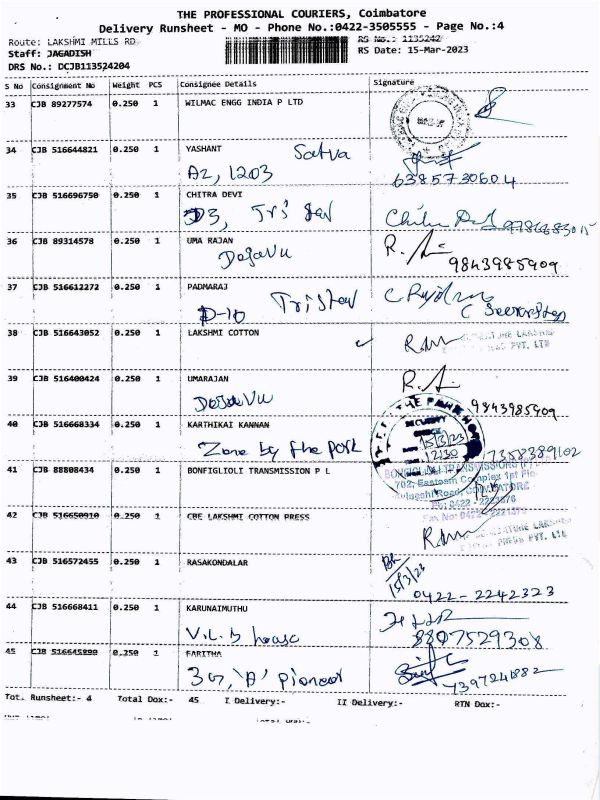 THE PROFESSIONAL COURIERS, Coimbatore
Delivery Runsheet - MO - Phone No.:0422-3505555 - Page No.:4
Route: LAKSHMI MILLS RD
RS No.: 1135242
Staff: JAGADISH
RS Date: 15-Mar-2023
DRS No.: DCJB113524204
S No Consignment No Weight PCS Consignee Details Signature
33 CJB 89277574 0.250 1 WILMAC ENGG INDIA P LTD
34 CJB 516644821 0.250 1 YASHANT Satva
A2, 1203
6385730604
35 CJB 516696750 0.250 1 CHITRA DEVI
D3,
36 CJB 89314578 0.250 1 UMA RAJAN
DejaVu
9843985909
37 CJB 516612272 0.250 1 PADMARAJ
D-10
38 CJB 516643052 0.250 1 LAKSHMI COTTON
PVT. LTD
39 CJB 516400424 0.250 1 UMARAJAN
DejaVu
9843985909
40 CJB 516668334 0.250 1 KARTHIKAI KANNAN
THE PARK
SECURITY
15/3/23
12:30
Zone by the Park
7358389102
41 CJB 88808434 0.250 1 BONFIGLIOLI TRANSMISSION P L
BONFIGLIOLI TRANSMISSIONS (P)
702, Eastern Complex 1st Flo
Road,
42 CJB 516650910 0.250 1 CBE LAKSHMI COTTON PRESS
PRESS PVT. LTD.
43 CJB 516572455 0.250 1 RASAKONDALAR
15/3/23
0422-2242323
44 CJB 516668411 0.250 1 KARUNAIMUTHU
house
8807529308
45 CJB 0.250 1 FARITHA
'A' Pioneer
Tot. Runsheet:- 4 Total Dox:- 45 I Delivery:- II Delivery:- RTN Dox:-